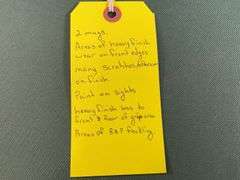 2 mags.
Areas of heavy finish
wear on front edges
many scratches
on finish
Paint on sights
heavy finish loss to
front & Rear of grip area
Areas of R&P Pocking.